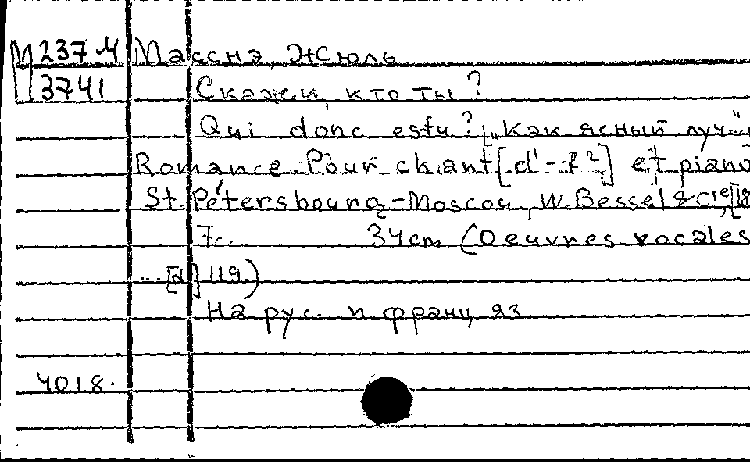 М 237.4 Массна, Жюль
3741 Скажи, кто ты?
Qui donc es tu? „Как ясный луч"
Romance. Pour chant [d¹-f²] et piano
St. Pétersbourg-Moscou, W. Bessel & Cie,
7 с. 34 cm (Oeuvres vocales
... 119.)
На рус. и франц яз
4018.